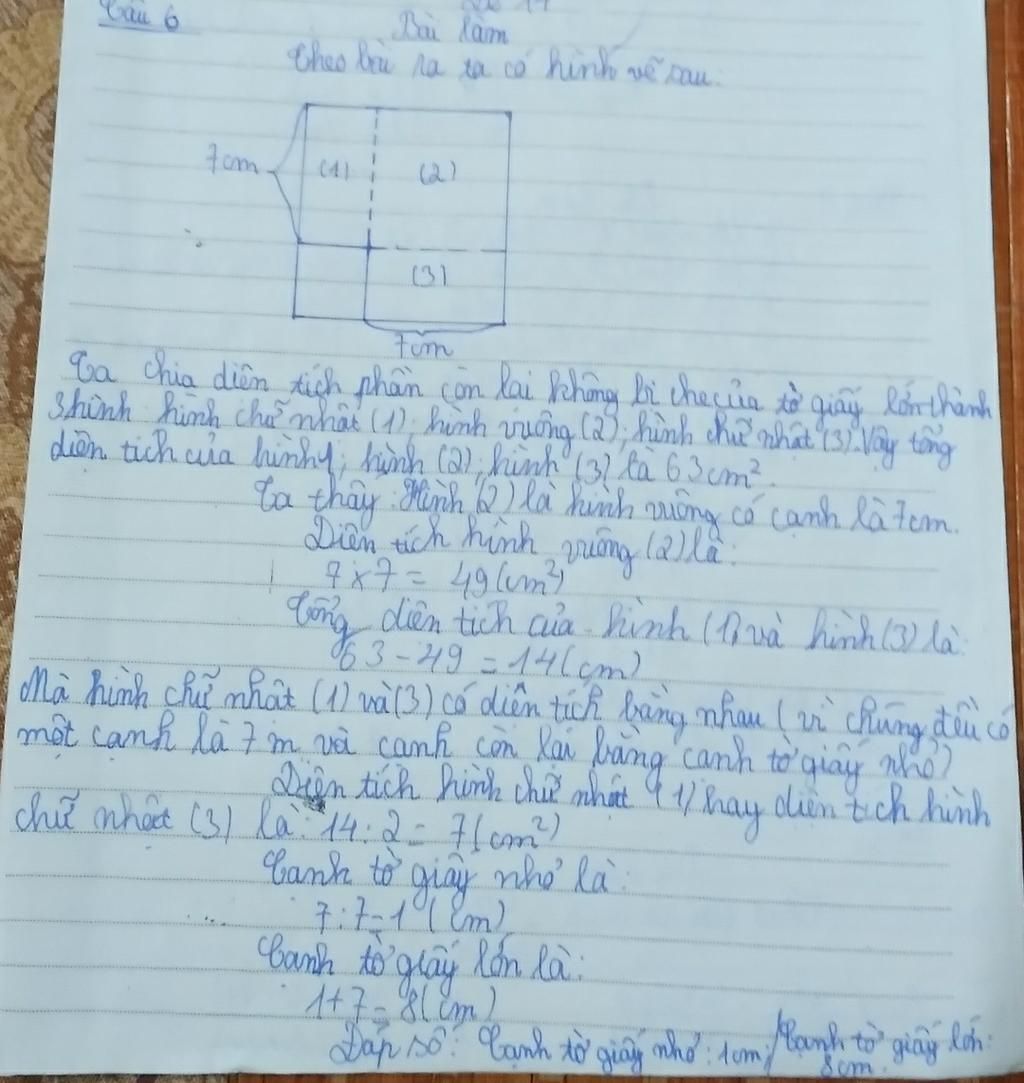 Câu 6
Bài làm
Theo bài ra ta có hình vẽ sau:
7cm (1) (2)
(3)
7cm
Ta chia diện tích phần còn lại không bị che của tờ giấy lớn thành
3 hình: hình chữ nhật (1); hình vuông (2); hình chữ nhật (3). Vậy tổng
diện tích của hình 1; hình (2); hình (3) là 63cm²
Ta thấy: Hình (2) là hình vuông có cạnh là 7cm.
Diện tích hình vuông (2) là:
7 x 7 = 49 (cm²)
Tổng diện tích của hình (1) và hình (3) là:
63 - 49 = 14 (cm)
Mà hình chữ nhật (1) và (3) có diện tích bằng nhau (vì chúng đều có
một cạnh là 7m và cạnh còn lại bằng cạnh tờ giấy nhỏ)
Diện tích hình chữ nhật (1) hay diện tích hình
chữ nhật (3) là: 14 : 2 = 7 (cm²)
Cạnh tờ giấy nhỏ là:
7 : 7 = 1 (cm)
Cạnh tờ giấy lớn là:
1 + 7 = 8 (cm)
Đáp số: Cạnh tờ giấy nhỏ: 1cm; Cạnh tờ giấy lớn:
8cm.